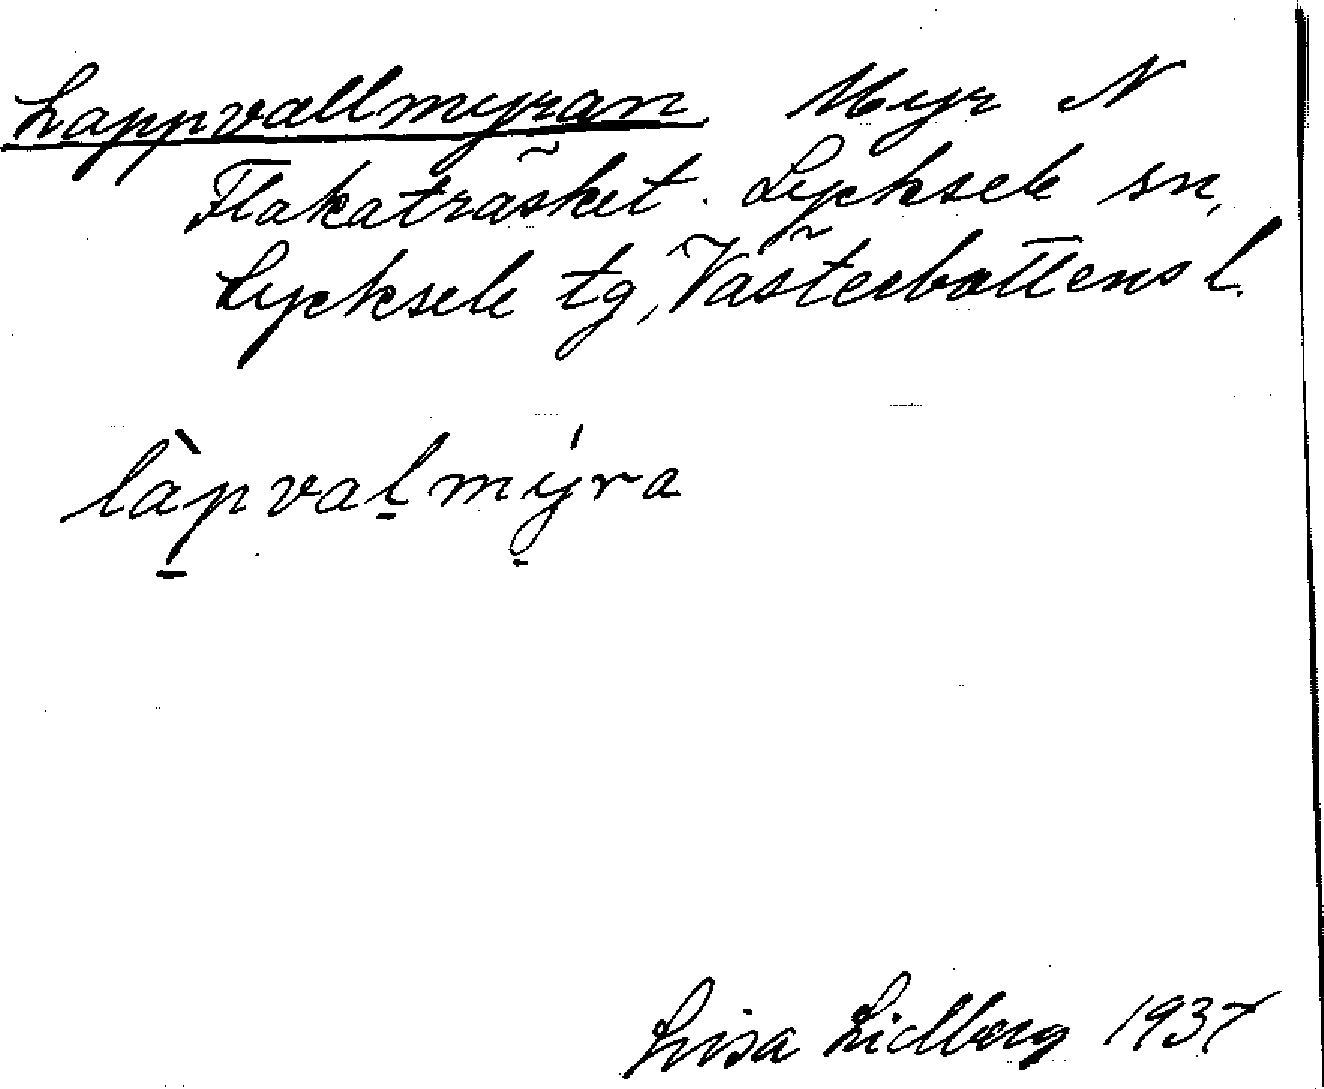 Lappvallmyran. Myr N
Flakaträsket. Lycksele sn,
Lycksele tg, Västerbottens l.
làpvalmýra
Lisa Lidberg 1937